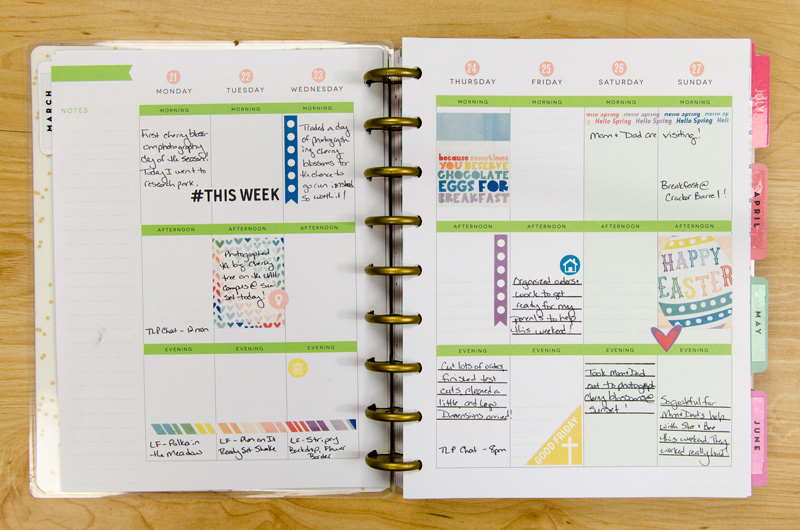 MARCH
NOTES
21
MONDAY
22
TUESDAY
23
WEDNESDAY
MORNING
MORNING
MORNING
First cherry bloss-
om photography
day of the season!
Today I went to
research park.
#THIS WEEK
Traded a day
of photograph
ing cherry
blossoms for
the chance to
go run instead
so worth it!
AFTERNOON
AFTERNOON
AFTERNOON
TLP Chat - 12 noon
Photographed
the big cherry
tree on the UAH
campus @ sun-
set today!
EVENING
EVENING
EVENING
LF - Polka in
the Meadow
LF - Plan on It
Ready Set Shake
LF - Stripey
Backdrop, Flower
Border
24
THURSDAY
25
FRIDAY
26
SATURDAY
27
SUNDAY
MORNING
MORNING
MORNING
MORNING
because sometimes
YOU DESERVE
CHOCOLATE
EGGS FOR
BREAKFAST
Hello Spring Hello Spring
Hello Spring Hello Spring Hell
Mom + Dad are visiting!
Breakfast @
Cracker Barrel!
AFTERNOON
AFTERNOON
AFTERNOON
AFTERNOON
Organized orders +
work to get
ready for my
parents to help
this weekend!
HAPPY
EASTER
EVENING
EVENING
EVENING
EVENING
Cut lots of orders,
finished test
cuts, cleaned a
little, and Lego
Dimensions arrived!!
TLP Chat - 8pm
GOOD FRIDAY
Took Mom + Dad
out to photograph
cherry blossoms @
sunset!
So grateful for
Mom + Dad's help
with
this weekend. They
worked really hard!
APRIL
MAY
JUNE